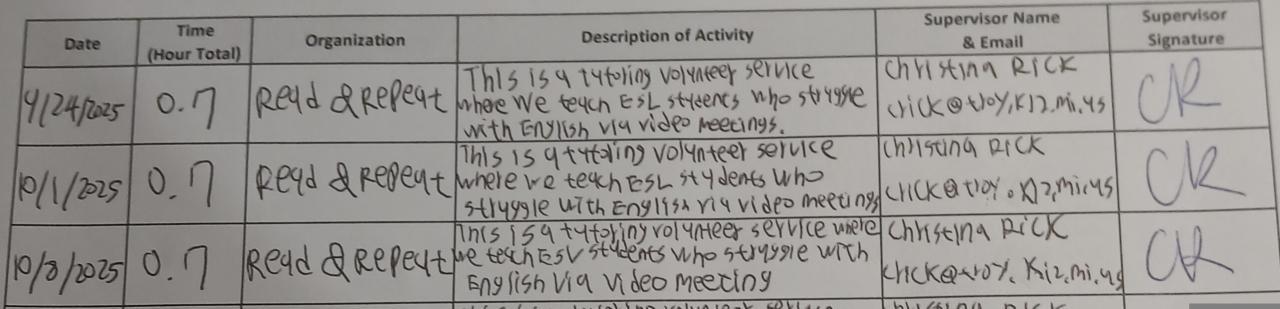 Date
Time
(Hour Total)
Organization
Description of Activity
Supervisor Name
& Email
Supervisor
Signature
9/24/2025
0.7
Read & Repeat
This is a tutoring volunteer service
where we teach ESL students who struggle
with English via video meetings.
Christina Rick
crick@troy.k12.mi.us
CR
10/1/2025
0.7
Read & Repeat
This is a tutoring volunteer service
where we teach ESL students who
struggle with English via video meetings
Christina Rick
crick@troy.k12.mi.us
CR
10/8/2025
0.7
Read & Repeat
This is a tutoring volunteer service where
we teach ESV students who struggle with
English via video meeting
Christina Rick
crick@troy.k12.mi.us
CR